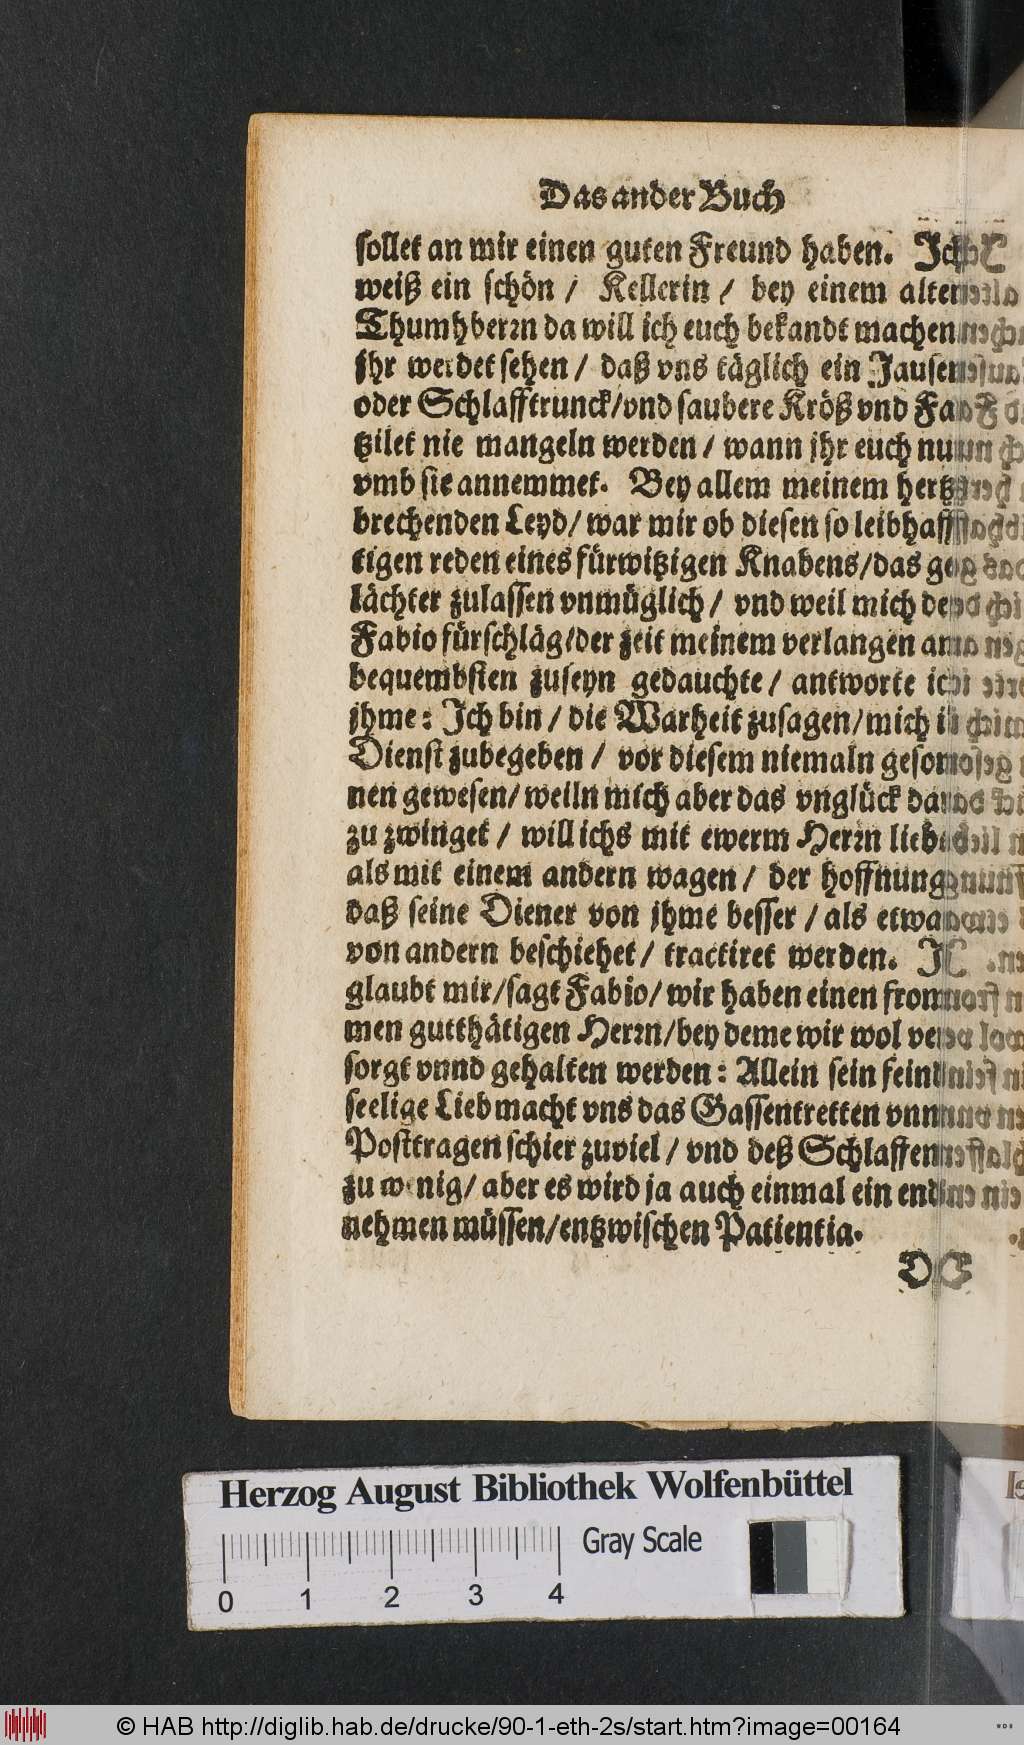 Das ander Buch
sollet an mir einen guten Freund haben. Ich
weiß ein schön / Kellerin / bey einem alten
Thumhherrn da will ich euch bekandt machen
jhr werdet sehen / daß vns täglich ein Jausen
oder Schlafftrunck/vnd saubere Kröß vnd Fa
tzilet nie mangeln werden / wann jhr euch nu
vmb sie annemmet. Bey allem meinem hertz
brechenden Leyd/ war mir ob diesen so leibhaff
tigen reden eines fürwitzigen Knabens/das ge
lächter zulassen vnmüglich / vnd weil mich de
Fabio fürschläg/der zeit meinem verlangen am
bequembsten zuseyn gedauchte / antworte ich
jhme: Ich bin / die Warheit zusagen/mich in
Dienst zubegeben / vor diesem niemaln geson
nen gewesen/ weiln mich aber das vnglück dar
zu zwinget / will ichs mit ewerm Herrn lieb
als mit einem andern wagen / der hoffnung
daß seine Diener von jhme besser / als etwan
von andern beschiehet / tractiret werden. J
glaubt mir/sagt Fabio/ wir haben einen from
men gutthätigen Herrn/bey deme wir wol ver
sorgt vnnd gehalten werden: Allein sein feind
seelige Lieb macht vns das Gassentretten vnn
Posttragen schier zuviel / vnd deß Schlaffen
zu wenig/ aber es wird ja auch einmal ein end
nehmen müssen/entzwischen Patientia.
Herzog August Bibliothek Wolfenbüttel
Gray Scale
0 1 2 3 4
© HAB http://diglib.hab.de/drucke/90-1-eth-2s/start.htm?image=00164